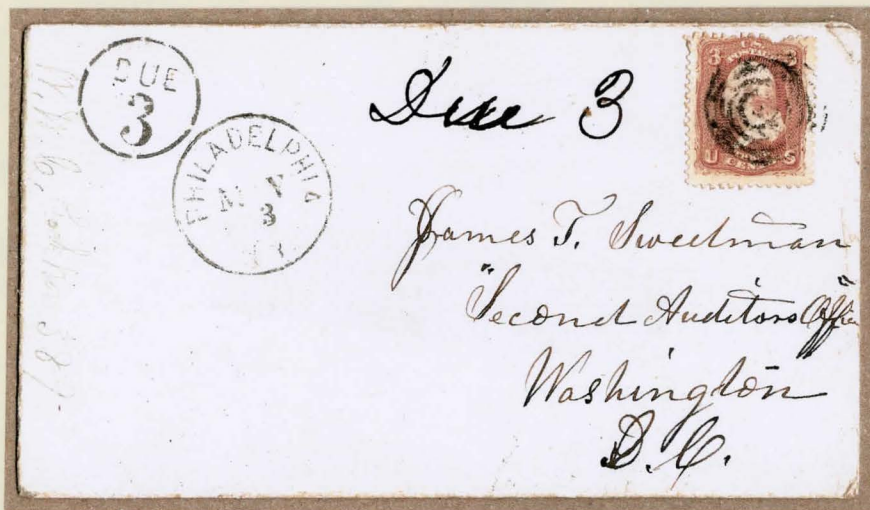 DUE
3
PHILADELPHIA
3
Due 3
3
U S
James T. Sweetman
"Second Auditors Office"
Washington
D.C.